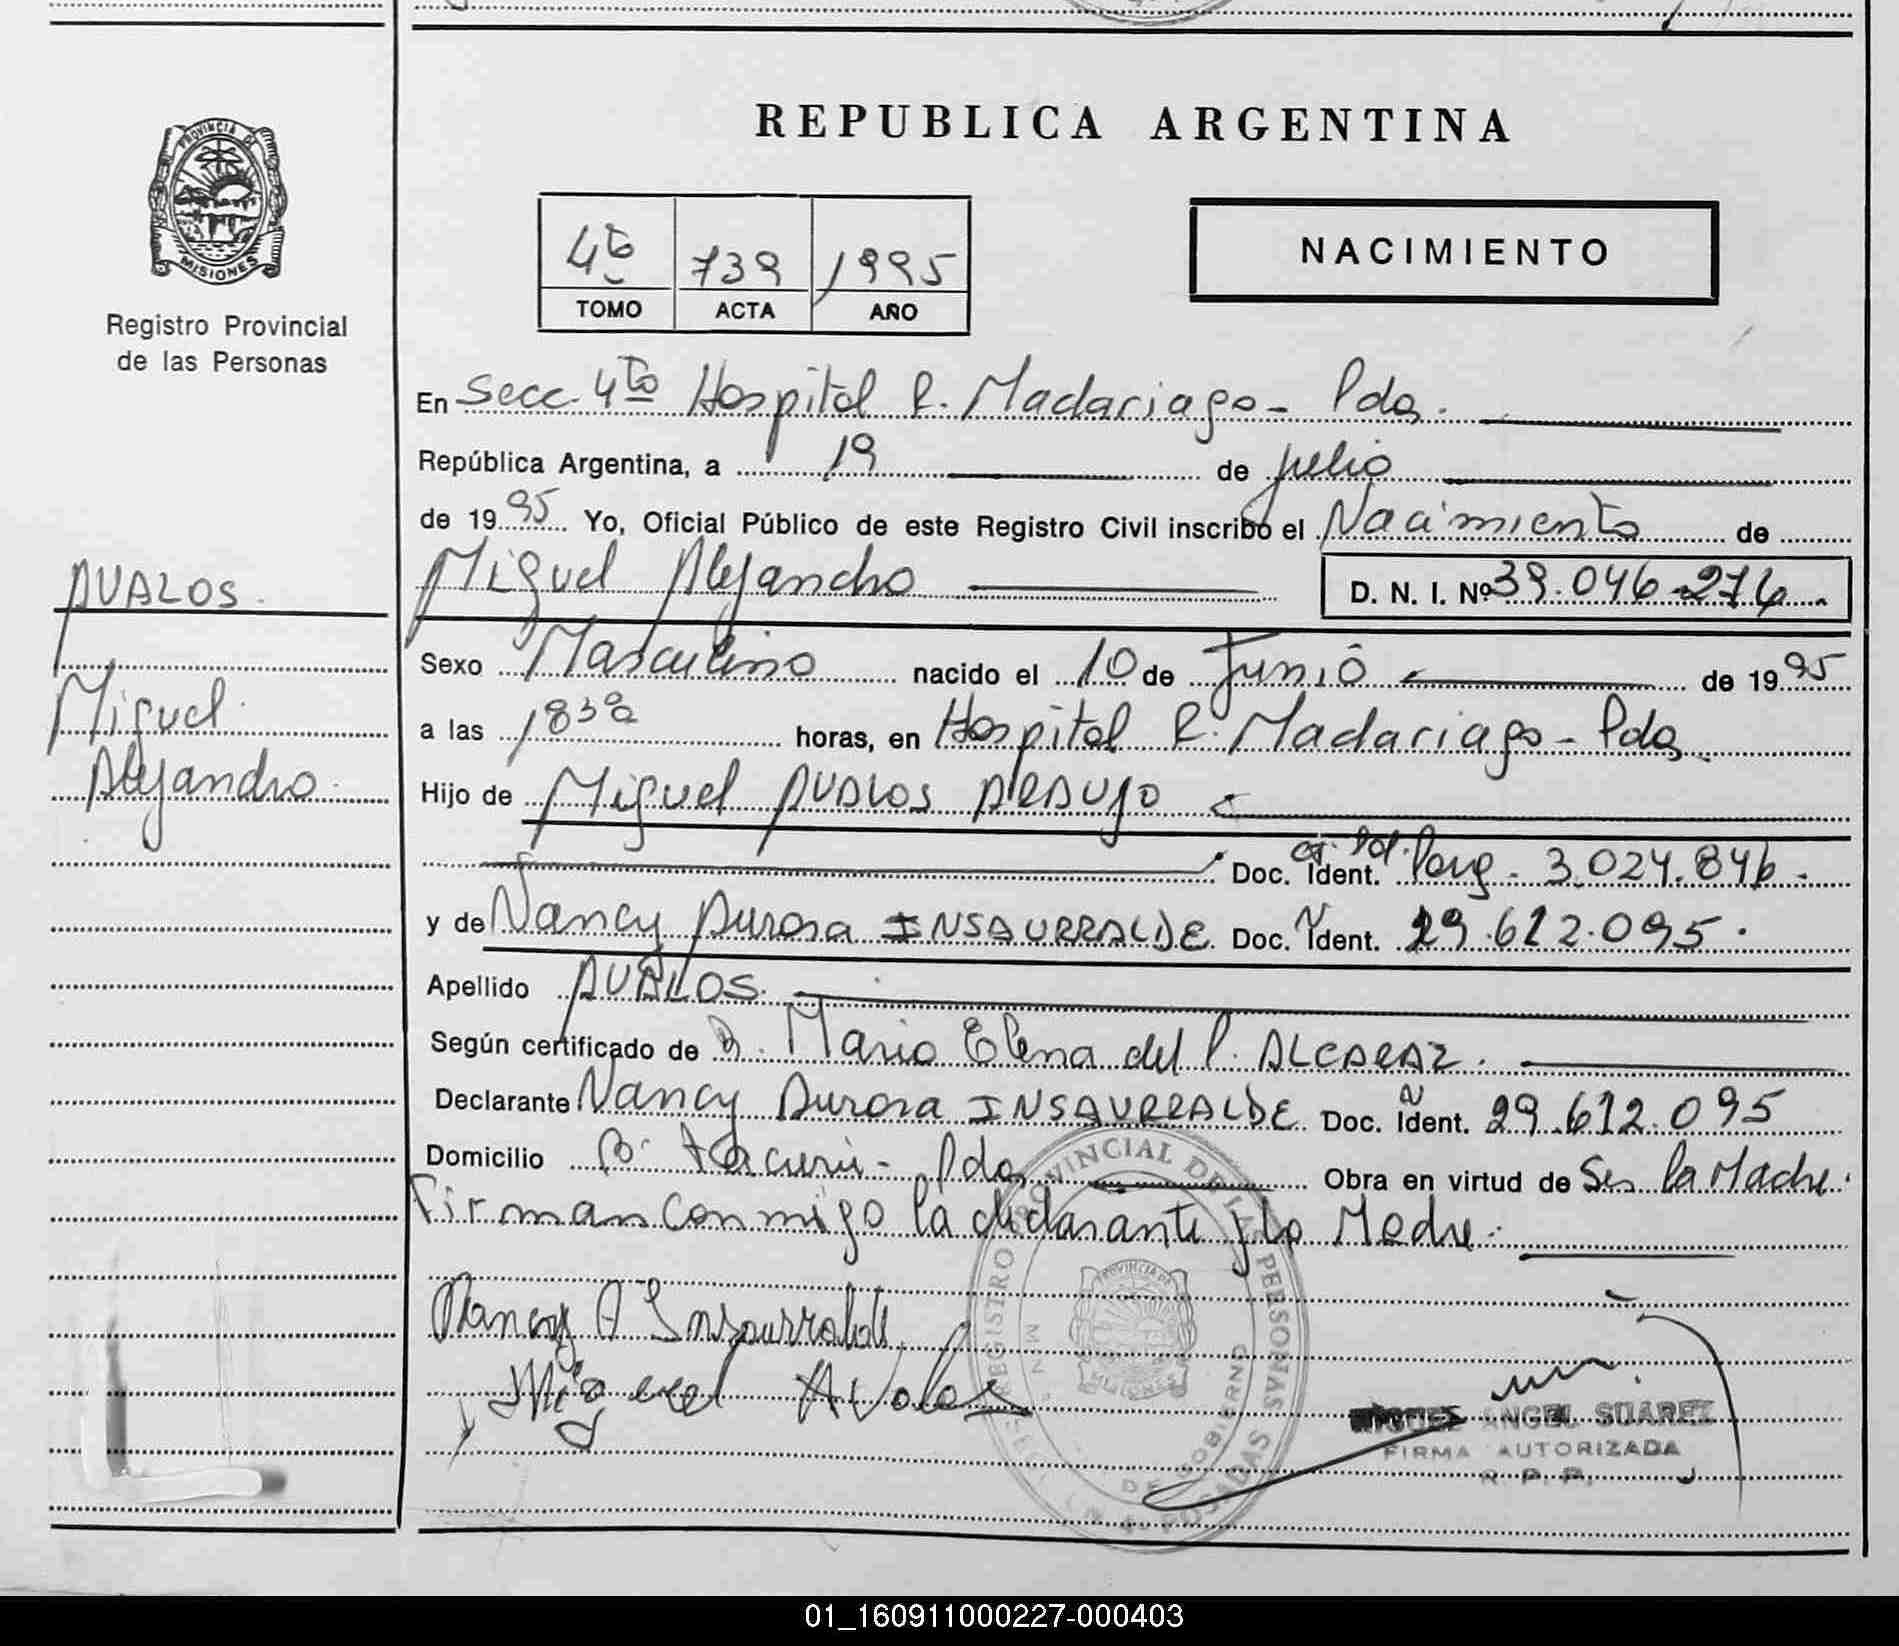 REPUBLICA ARGENTINA
PROVINCIA DE
MISIONES
Registro Provincial
de las Personas
4to 739 1995
TOMO ACTA AÑO
NACIMIENTO
En Secc. 4to Hospital R. Madariaga - Pdas.
República Argentina, a 19 de julio
de 1995 Yo, Oficial Público de este Registro Civil inscribo el Nacimiento de
Miguel Alejandro D. N. I. Nº 39.046.274.
AVALOS.
Miguel
Alejandro.
Sexo Masculino nacido el 10 de Junio de 1995
a las 1830 horas, en Hospital R. Madariaga - Pdas.
Hijo de Miguel AVALOS ARAUJO
Doc. Ident. Pol. Parg. 3.024.846.
y de Nancy Aurora INSAURRALDE Doc. Ident. 29.612.095.
Apellido AVALOS.
Según certificado de D. Maria Elena del P. ALCARAZ.
Declarante Nancy Aurora INSAURRALDE Doc. Ident. 29.612.095
Domicilio Bº Tacurú - Pdas Obra en virtud de Ser la Madre.
Firman conmigo la declarante y la Madre.
Nancy A Insaurralde
Miguel Avalos
REGISTRO PROVINCIAL DE LAS PERSONAS
PROVINCIA DE
MISIONES
DE GOBIERNO
POSADAS
MIGUEL ANGEL SUAREZ
FIRMA AUTORIZADA
R. P. P.
01_160911000227-000403